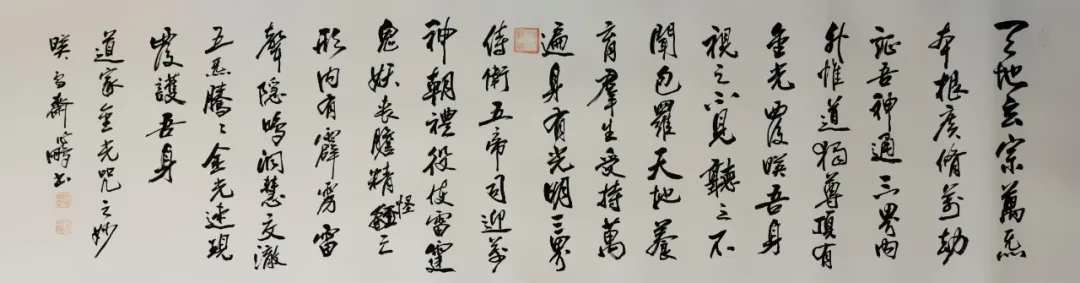 天地玄宗萬炁
本根廣脩萬劫
証吾神通三界内
外惟道獨尊頂有
金光覆暎吾身
視之不見聽之不
聞包羅天地養
育羣生受持萬
遍身有光明三界
侍衛五帝司迎萬
神朝禮役使雷霆
鬼妖喪膽精怪亡
形内有霹靂雷
聲隱鳴洞慧交澈
五炁騰〻金光速現
覆護吾身
道家金光咒之妙
暎雪齋書